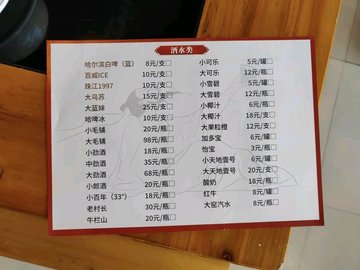 酒水类
哈尔滨白啤（蓝） 8元/支□
百威ICE 10元/支□
珠江1997 10元/支□
大乌苏 15元/支□
大蓝妹 25元/支□
哈啤冰 10元/支□
小毛铺 20元/瓶□
大毛铺 98元/瓶□
小劲酒 18元/瓶□
中劲酒 35元/瓶□
大劲酒 68元/瓶□
小郎酒 20元/瓶□
小百年（33°） 18元/瓶□
老村长 30元/瓶□
牛栏山 20元/瓶□
小可乐 5元/罐□
大可乐 12元/瓶□
小雪碧 5元/罐□
大雪碧 12元/瓶□
小椰汁 6元/瓶□
大椰汁 18元/支□
大果粒橙 12元/支□
加多宝 6元/罐□
怡宝 3元/瓶□
小天地壹号 6元/罐□
大天地壹号 20元/瓶□
酸奶 18元/瓶□
红牛 8元/罐□
大窑汽水 8元/瓶□